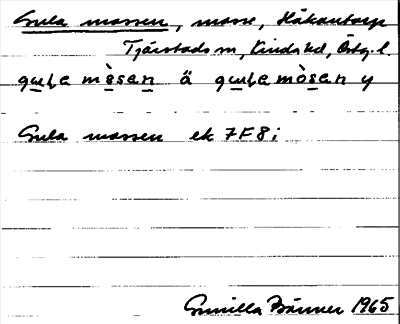 Gula mossen, mosse, Håkantorp
Tjärstads sn, Kinds hd, Östg. l.
gụḷa mòsen ä gụḷamòsen y
Gula mossen ek 7F8i
Gunilla Bänner 1965